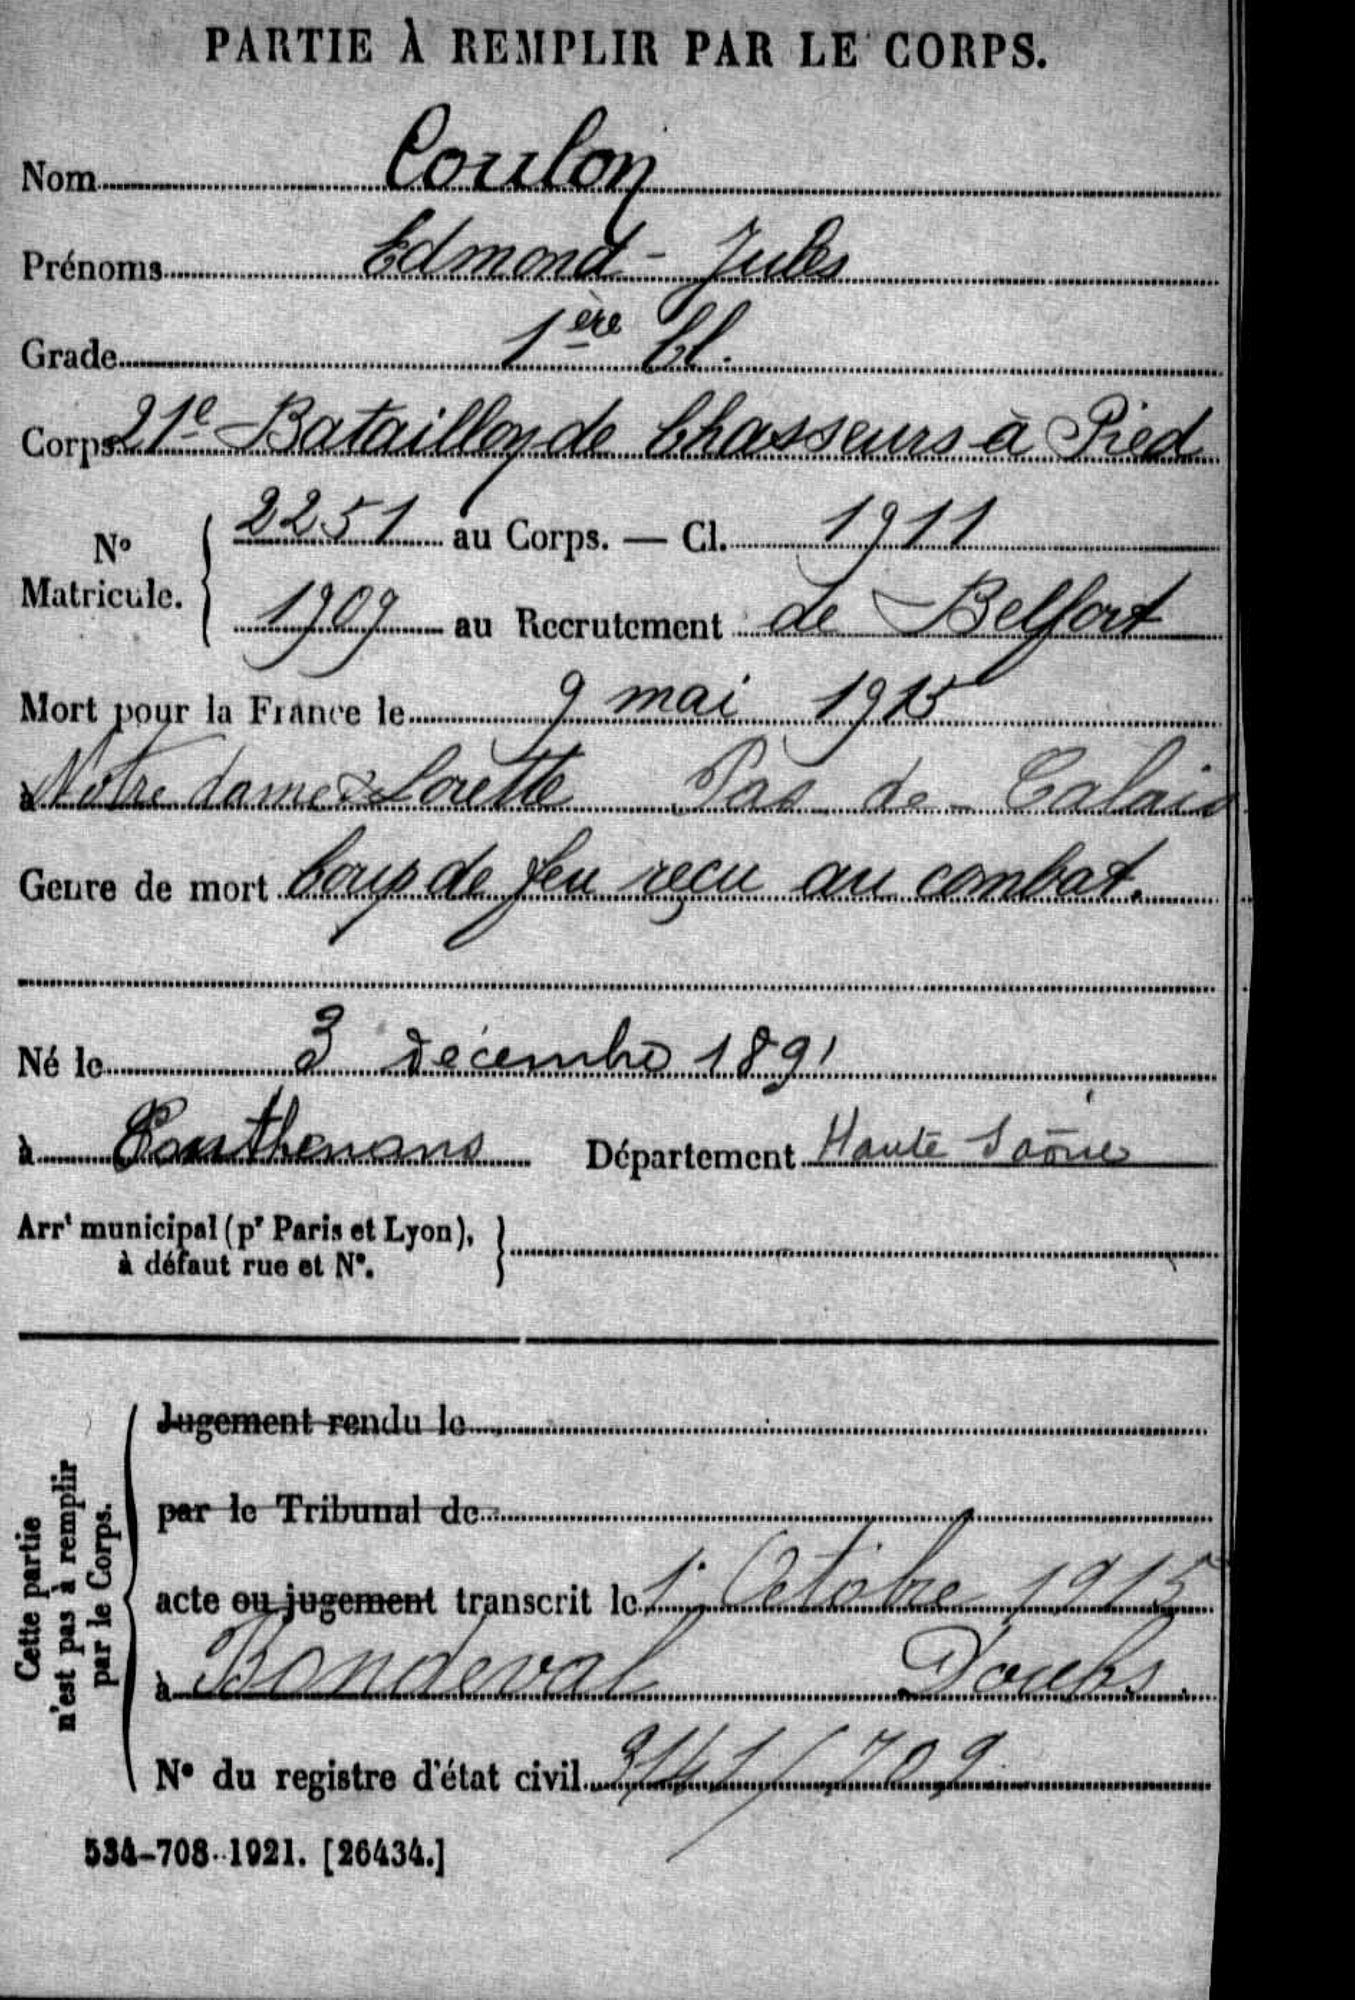 PARTIE À REMPLIR PAR LE CORPS.
Nom Coulon
Prénoms Edmond - Jules
Grade 1ère Cl.
Corps 21e Bataillon de Chasseurs à Pied
No Matricule. { 2251 au Corps. — Cl. 1911
1909 au Recrutement de Belfort
Mort pour la France le 9 mai 1915
à Notre dame de Lorette Pas de - Calais
Genre de mort Coup de feu reçu au combat.
Né le 3 décembre 1891
à Département Haute Saône
Arrt municipal (pr Paris et Lyon), à défaut rue et No. }
Cette partie n'est pas à remplir par le Corps.
Jugement rendu le
par le Tribunal de
acte ou jugement transcrit le 1. Octobre 1915
à Bondeval Doubs.
No du registre d'état civil 3141/709
534-708-1921. [26434.]